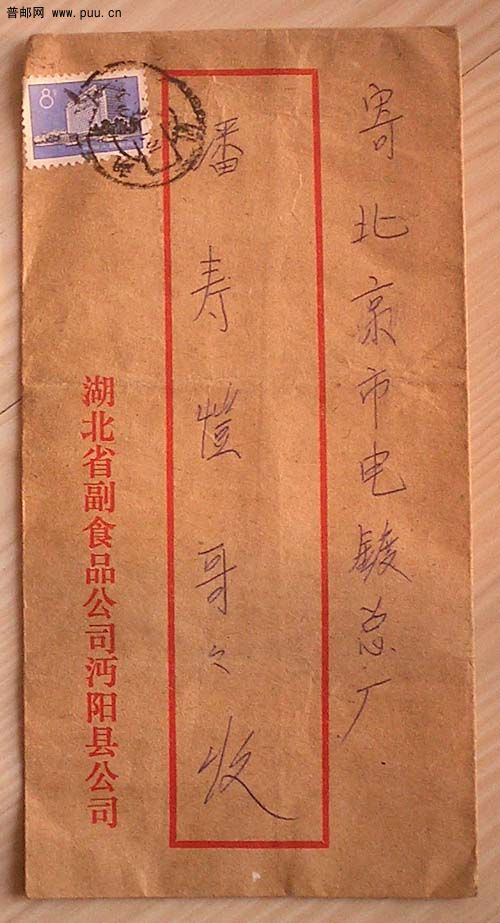 普邮网 www.puu.cn
8分
寄北京市电镀总厂
潘寿恺哥々收
湖北省副食品公司沔阳县公司